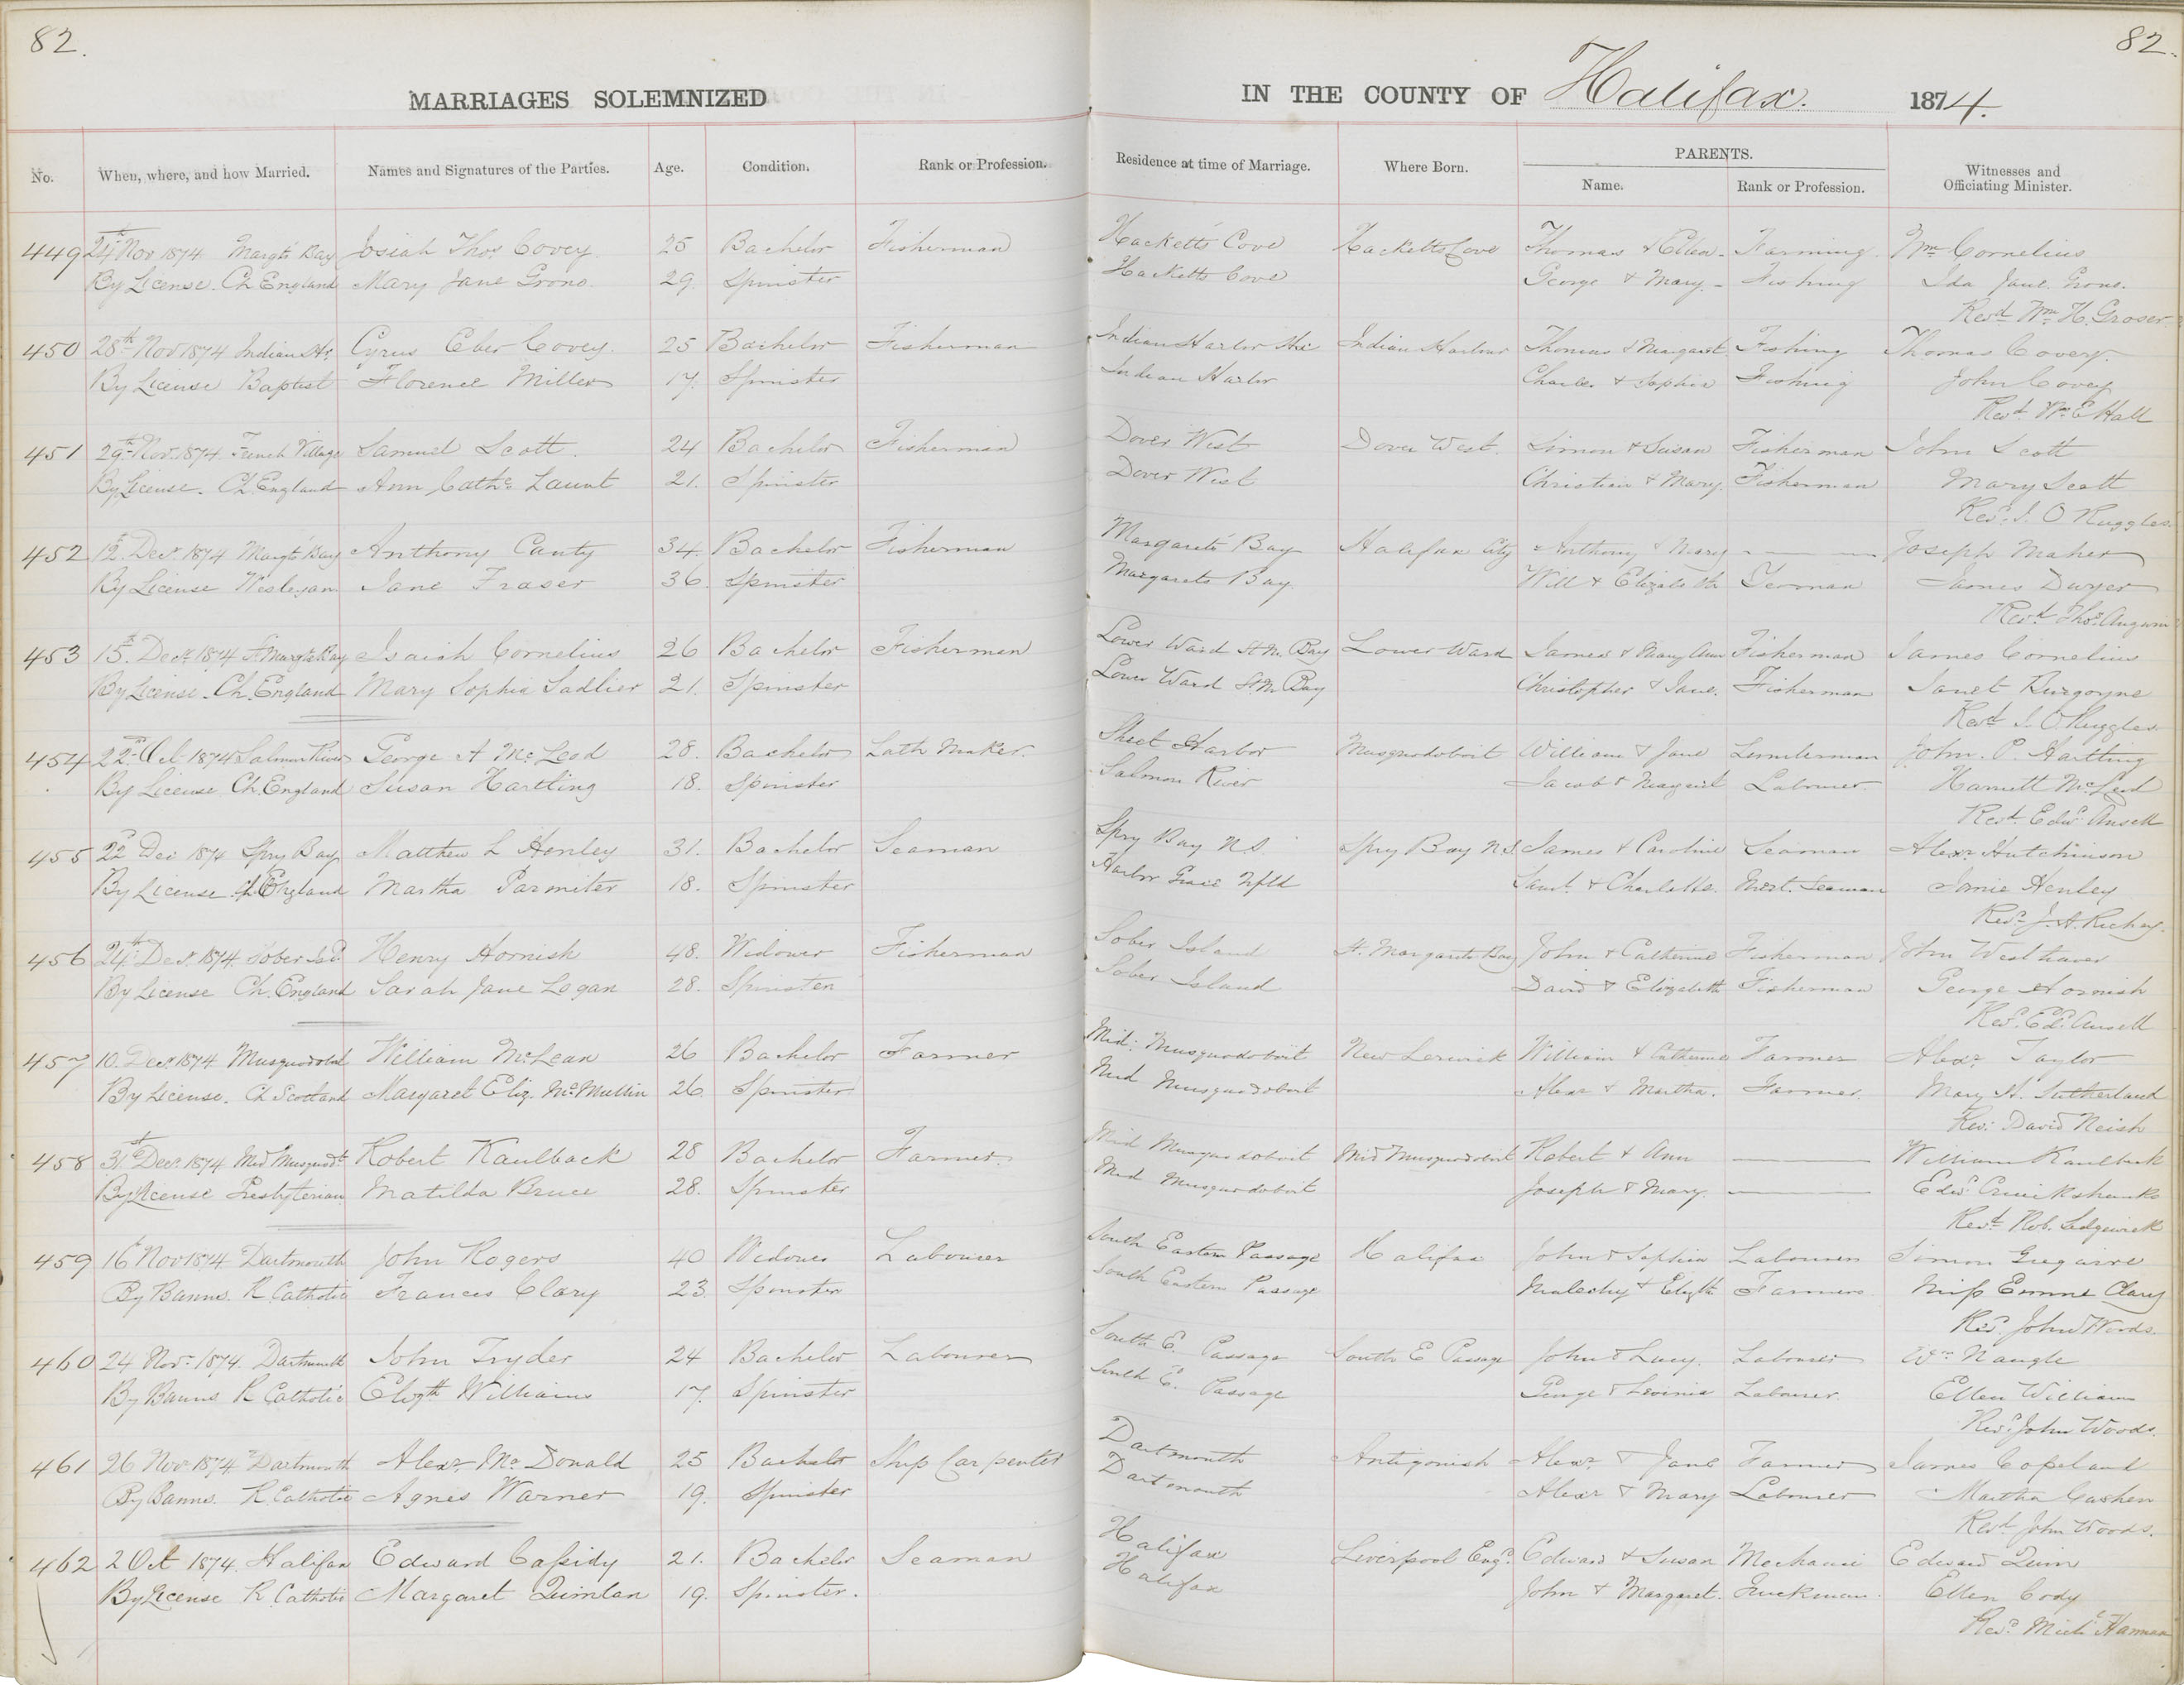 82.
82.
MARRIAGES SOLEMNIZED
IN THE COUNTY OF Halifax. 1874.
No. When, where, and how Married. Names and Signatures of the Parties. Age. Condition. Rank or Profession. Residence at time of Marriage. Where Born. PARENTS. Name. Rank or Profession. Witnesses and Officiating Minister.
449 24th Nov 1874 Margts Bay Josiah Thos. Covey 25 Bachelor Fisherman Hacketts Cove Hacketts Cove Thomas & Ellen Farming Wm Cornelius
By License. Ch England Mary Jane Grono. 29. Spinster Hacketts Cove George & Mary Fishing Ida Jane Grono.
Revd Wm H. Groser
450 28th Nov 1874 Indian Hr. Cyrus Eber Covey. 25 Bachelor Fisherman Indian Harbor Indian Harbour Thomas & Margaret Fishing Thomas Covey.
By License Baptist Florence Miller 17. Spinster Indian Harbor Charles & Sophia Fishing John Covey
Revd Wm E Hall
451 29th Nov. 1874. French Village Samuel Scott. 24 Bachelor Fisherman Dover West Dover West. Simon & Susan Fisherman John Scott
By License. Ch. England Ann Cathe Launt 21. Spinster Dover West Christian & Mary. Fisherman Mary Scott
Revd. J. O Ruggles
452 12th Decr. 1874 Margts Bay Anthony Canty 34. Bachelor Fisherman Margarets Bay Halifax City Anthony & Mary Joseph Maher
By License Wesleyan Jane Fraser 36. Spinster Margarets Bay. Will & Elizabeth Yeoman James Dwyer
Revd Thos. Angwin
453 15th Decr. 1874 St Margts Bay Isaiah Cornelius 26 Bachelor Fisherman Lower Ward St M. Bay Lower Ward James & Mary Ann Fisherman James Cornelius
By License. Ch. England Mary Sophia Sadlier 21. Spinster Lower Ward St M Bay Christopher & Jane. Fisherman Janet Burgoyne
Revd J. O. Ruggles
454 22nd Oct 1874 Salmon River George A McLeod 28. Bachelor Lath Maker. Sheet Harbor Musquodoboit William & Jane Lumberman John. P. Hartling
By License Ch. England Susan Hartling 18. Spinster Salmon River Jacob & Margaret Labourer Harriett McLeod
Revd. Edwd. Ansell
455 22d Dec 1874 Spry Bay Matthew L Henley 31. Bachelor Seaman Spry Bay N S Spry Bay N.S. James & Caroline Seaman Alexr. Hutchinson
By License. Ch England Martha Parmiter 18. Spinster Harbor Grace Nfld Saml. & Charlotte. Mast. Seaman Jamie Henley
Revd. J. A. Richey.
456 24th Decr. 1874. Sober Isd. Henry Hornish 48. Widower Fisherman Sober Island St. Margarets Bay John & Catherine Fisherman John Westhaver
By License Ch. England Sarah Jane Logan 28. Spinster Sober Island David & Elizabeth Fisherman George Hornish
Revd. Ed. Ansell
457 10. Decr. 1874 Musquodobt William McLean 26 Bachelor Farmer Mid: Musquodoboit New Lerwick William & Catherine Farmer Alexr. Taylor
By License. Ch Scotland Margaret Eliz. McMullin 26 Spinster Mid Musquodoboit Alexr & Martha. Farmer. Mary A. Sutherland
Rev: David Neish
458 31st Decr. 1874 Mid Musquodt. Robert Kaulback 28 Bachelor Farmer. Mid Musquodoboit Mid Musquodoboit Robert & Ann William Kaulback
By License Presbyterian Matilda Bruce 28. Spinster Mid Musquodoboit Joseph & Mary. Edwd. Cruickshanks
Revd. Rob. Sedgewick
459 16 Nov 1874 Dartmouth John Rogers 40 Widower Labourer South Eastern Passage Halifax John & Sophia Labourer Simon
By Banns. R. Catholic Frances Clary 23. Spinster South Eastern Passage & Elizth Farmer Miss Emma Clary
Revd. John Woods.
460 24 Novr. 1874. Dartmouth John Tryder 24 Bachelor Labourer South E. Passage South E Passage John & Lucy. Labourer Wm Naugle
By Banns R Catholic Elizth Williams 17. Spinster South E. Passage George & Levinia Labourer. Ellen William
Revd. John Woods.
461 26 Nov 1874. Dartmouth Alexr. McDonald 25 Bachelor Ship Carpenter Dartmouth Antigonish Alexr & Jane Farmer James Copeland
By Banns. R. Catholic Agnes Warner 19. Spinster Dartmouth Alexr & Mary Labourer Martha Cashen
Revd John Woods.
462 2 Oct 1874. Halifax Edward Cassidy 21. Bachelor Seaman Halifax Liverpool Engd. Edward & Susan Mechanic Edward Quin
By License R. Catholic Margaret Quinlan 19. Spinster. Halifax John & Margaret. Truckman. Ellen Cody
Revd. Michl Hannan